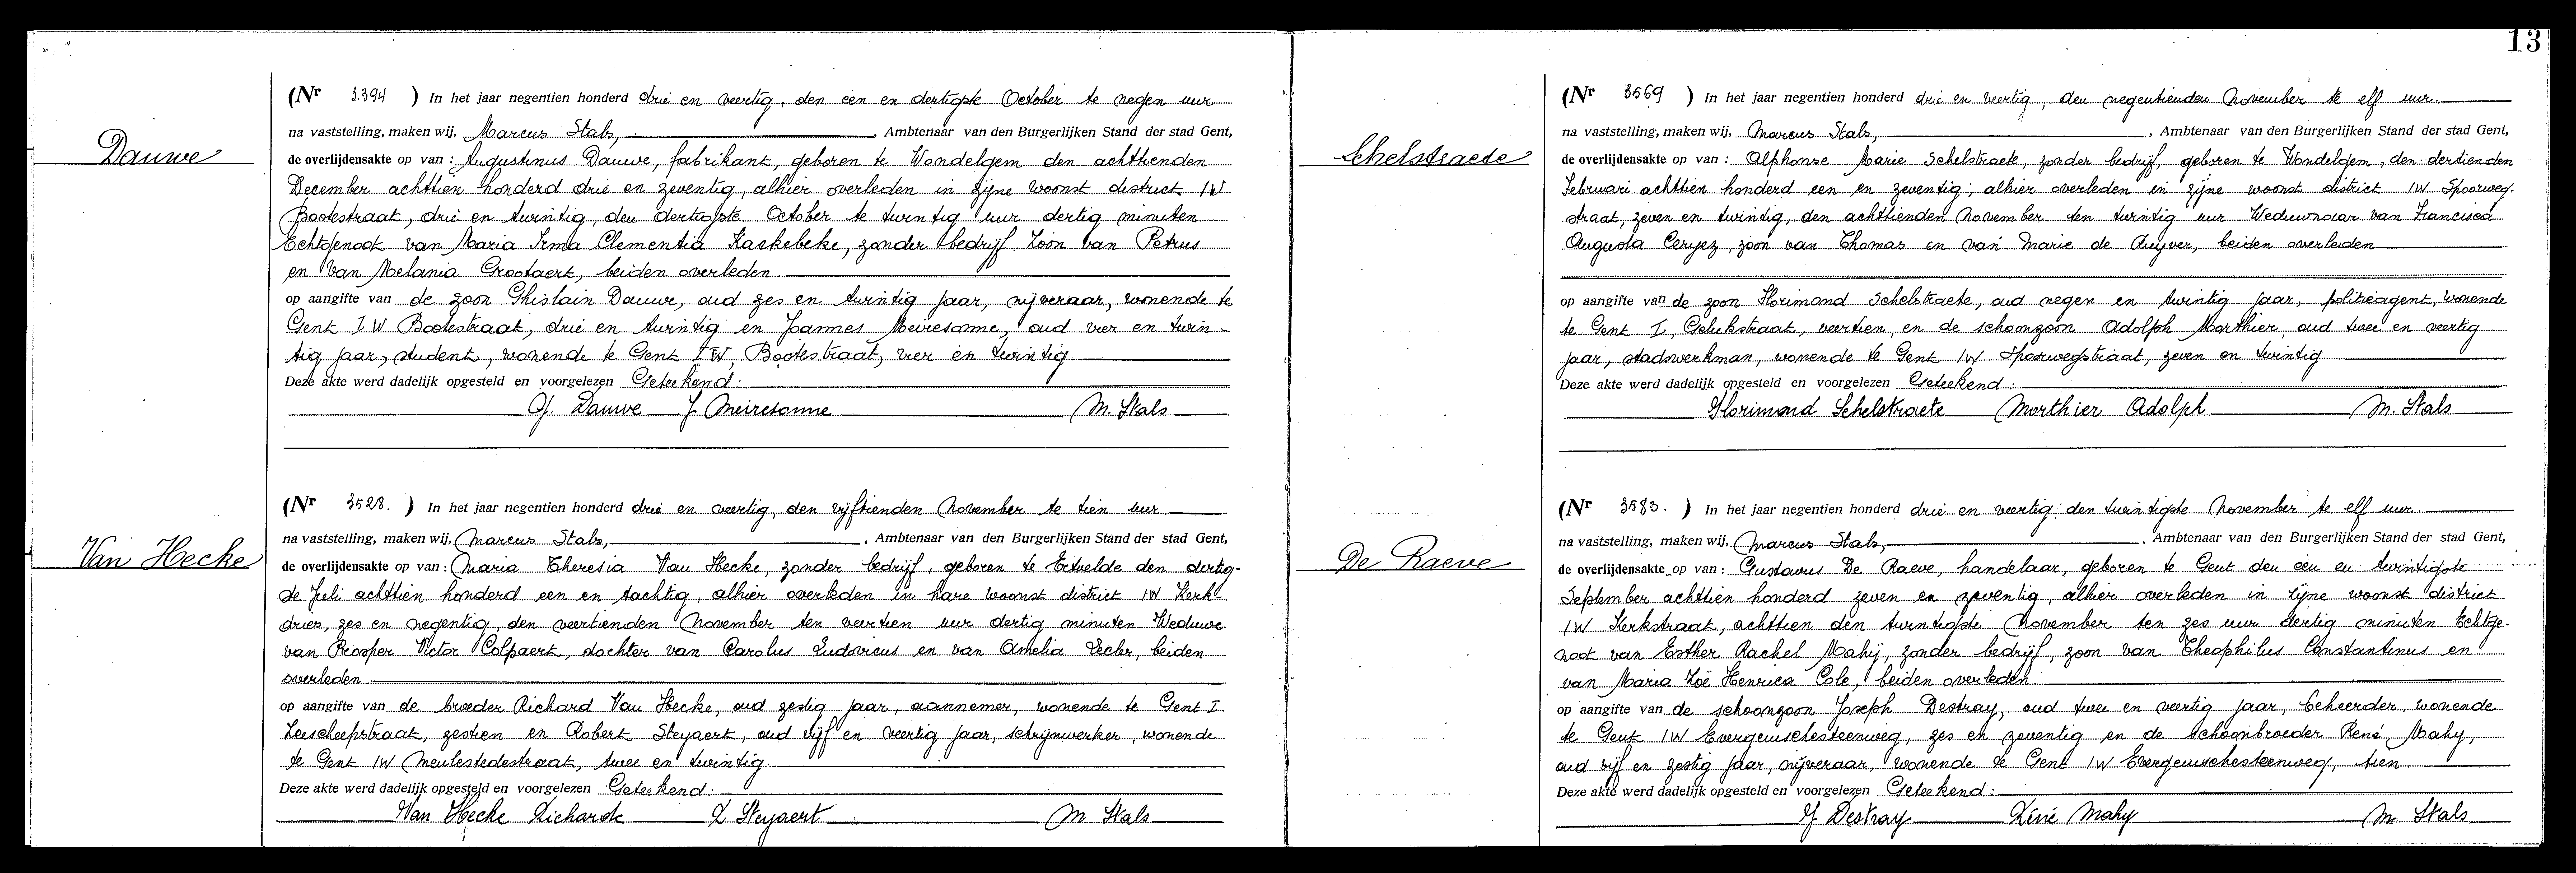 13
Dauwe
(Nr 3.394 ) In het jaar negentien honderd drie en veertig, den een en dertigste October te negen uur
na vaststelling, maken wij, Marcus Stals, , Ambtenaar van den Burgerlijken Stand der stad Gent,
de overlijdensakte op van : Augustinus Dauwe, fabrikant, geboren te Wondelgem den achttienden
December achttien honderd drie en zeventig, alhier overleden in zijne woonst district IW
Bootestraat, drie en twintig, den dertigste October te twintig uur dertig minuten
Echtgenoot van Maria Irma Clementia Kaekebeke, zonder bedrijf Zoon van Petrus
en van Melania Grootaert, beiden overleden.
op aangifte van de zoon Ghislain Dauwe, oud zes en twintig jaar, nijveraar, wonende te
Gent IW Bootestraat, drie en twintig en Joannes Meiresonne, oud vier en twin-
tig jaar, student, wonende te Gent IW, Bootestraat, vier en twintig
Deze akte werd dadelijk opgesteld en voorgelezen Geteekend:
G. Dauwe J. Meiresonne M. Stals
Van Hecke
(Nr 3528. ) In het jaar negentien honderd drie en veertig, den vijftienden November te tien uur
na vaststelling, maken wij, Marcus Stals, , Ambtenaar van den Burgerlijken Stand der stad Gent,
de overlijdensakte op van : Maria Theresia Van Hecke, zonder bedrijf, geboren te Ertvelde den dertig-
ste Juli achttien honderd een en tachtig, alhier overleden in hare woonst district IW Kerk-
dries, zes en negentig, den veertienden November ten veertien uur dertig minuten Weduwe
van Prosper Victor Colpaert, dochter van Carolus Ludovicus en van Amelia Lecler, beiden
overleden.
op aangifte van de broeder Richard Van Hecke, oud zestig jaar, aannemer, wonende te Gent I
Zeescheepstraat, zestien en Robert Steyaert, oud vijf en veertig jaar, schrijnwerker, wonende
te Gent IW Meulestedestraat, twee en twintig.
Deze akte werd dadelijk opgesteld en voorgelezen Geteekend:
Van Hecke Richarde R Steyaert M Stals
Schelstraete
(Nr 3569 ) In het jaar negentien honderd drie en veertig, den negentienden November te elf uur.
na vaststelling, maken wij, Marcus Stals, , Ambtenaar van den Burgerlijken Stand der stad Gent,
de overlijdensakte op van : Alphonse Marie Schelstraete, zonder bedrijf, geboren te Wondelgem, den dertienden
Februari achttien honderd een en zeventig, alhier overleden in zijne woonst district IW Spoorweg-
straat, zeven en twintig, den achttienden November ten twintig uur Weduwnaar van Francisca
Augusta Ceryez, zoon van Thomas en van Marie de Ruyver, beiden overleden
op aangifte van de zoon Florimond Schelstraete, oud negen en twintig jaar, politieagent, wonende
te Gent I, Gelukstraat, veertien, en de schoonzoon Adolph Morthier oud twee en veertig
jaar, stadswerkman, wonende te Gent IW Spoorwegstraat, zeven en twintig
Deze akte werd dadelijk opgesteld en voorgelezen Geteekend:
Florimond Schelstraete Morthier Adolph M. Stals
De Raeve
(Nr 3583. ) In het jaar negentien honderd drie en veertig den twintigste November te elf uur.
na vaststelling, maken wij, Marcus Stals, , Ambtenaar van den Burgerlijken Stand der stad Gent,
de overlijdensakte op van : Gustavus De Raeve, handelaar, geboren te Gent den een en twintigste
September achttien honderd zeven en zeventig, alhier overleden in zijne woonst district
IW Kerkstraat, achttien den twintigste November ten zes uur dertig minuten Echtge-
noot van Esther Rachel Mahy, zonder bedrijf, zoon van Theophilus Constantinus en
van Maria Zoë Henrica Cole, beiden overleden
op aangifte van de schoonzoon Joseph Destray, oud twee en veertig jaar, beheerder, wonende
te Gent IW Evergemschesteenweg, zes en zeventig en de schoonbroeder René Mahy,
oud vijf en zestig jaar, nijveraar, wonende te Gent IW Evergemschesteenweg, tien
Deze akte werd dadelijk opgesteld en voorgelezen Geteekend:
J Destray Réné Mahy M. Stals